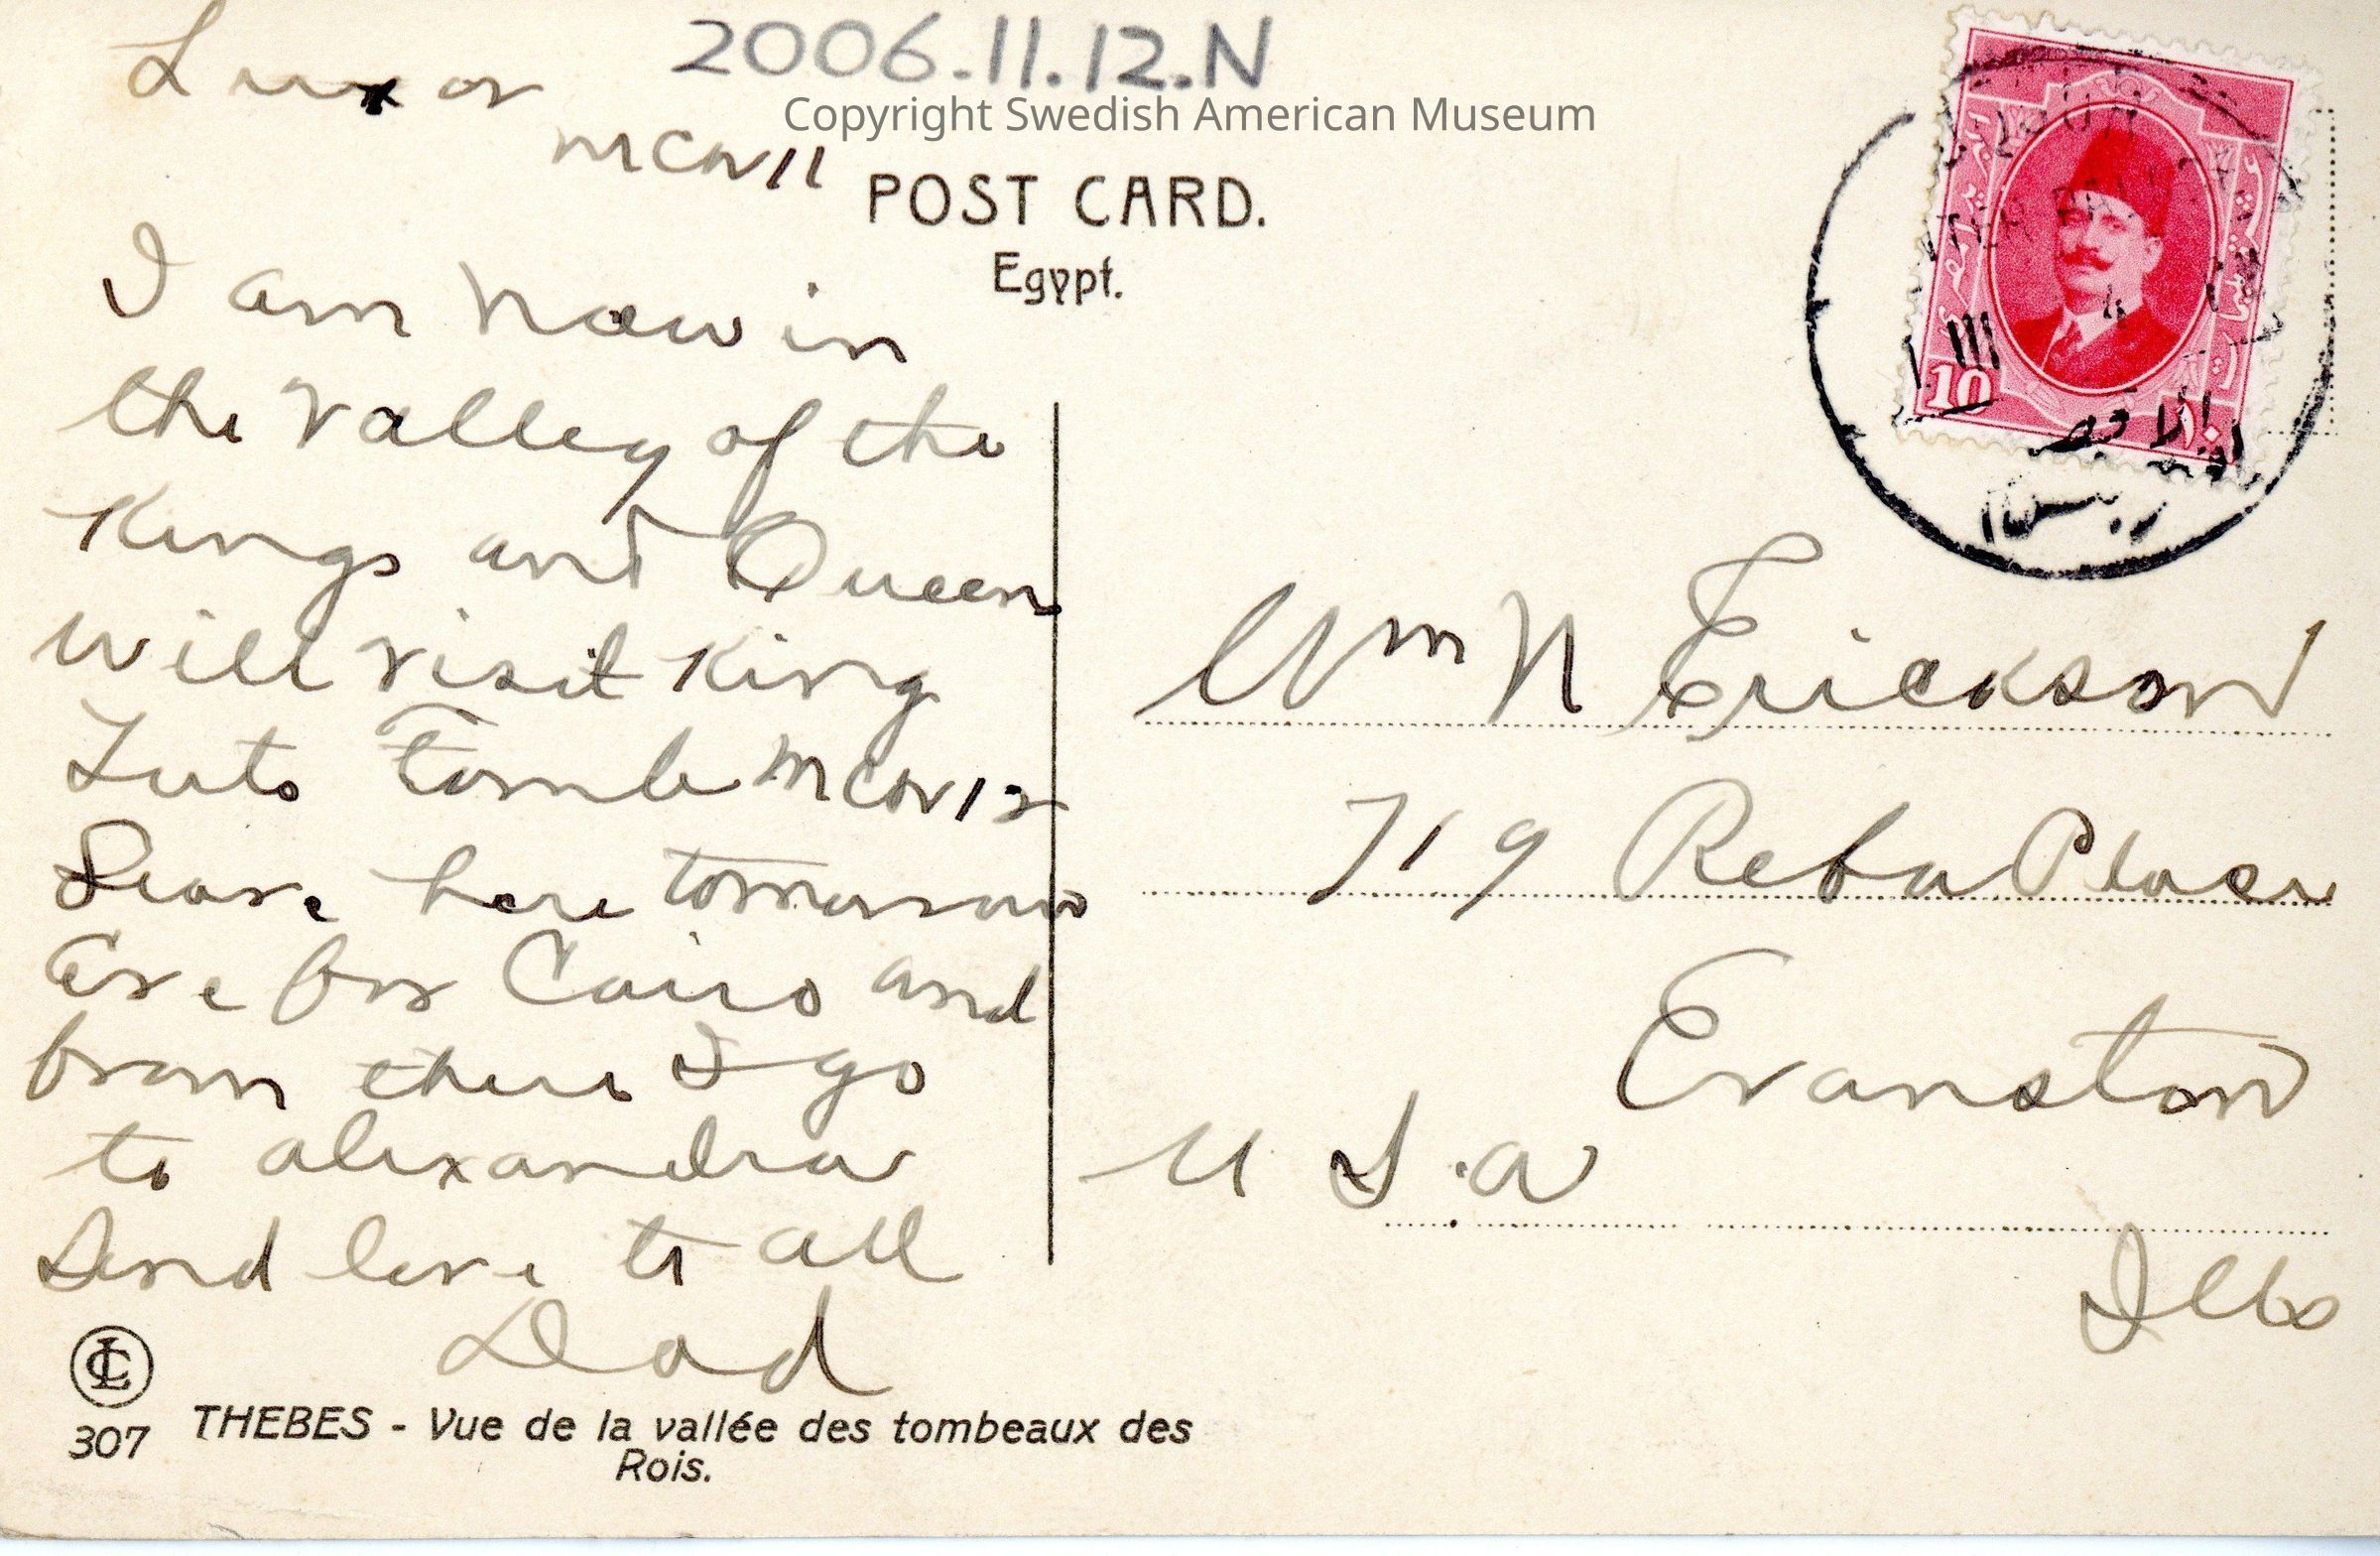 2006.11.12.N
Copyright Swedish American Museum
Luxor
mch 11
POST CARD.
Egypt.
I am now in
the Valley of the
Kings and Queen
will visit King
Tuts Tomb mch 12
Leave here tomorrow
Eve for Cairo and
from there I go
to alexandra
Send love to all
Dad
307 THEBES - Vue de la vallée des tombeaux des
Rois.
Wm N Erickson
719 Reba Place
Evanston
U S.a
Ills
10
الاقصر